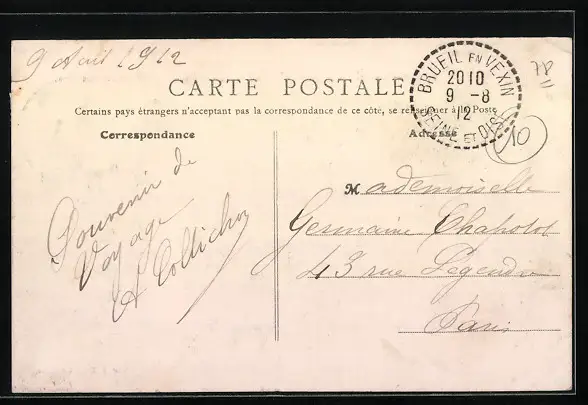 9 Août 1912
CARTE POSTALE
Certains pays étrangers n'acceptant pas la correspondance de ce côté, se renseigner à la Poste
Correspondance
Adresse
BRUEIL EN VEXIN
20 10
9 -8
12
SEINE ET OISE
78
10
Souvenir de
Voyage
A Collichon
Mademoiselle
Germaine Chapotot
43 rue Legendre
Paris